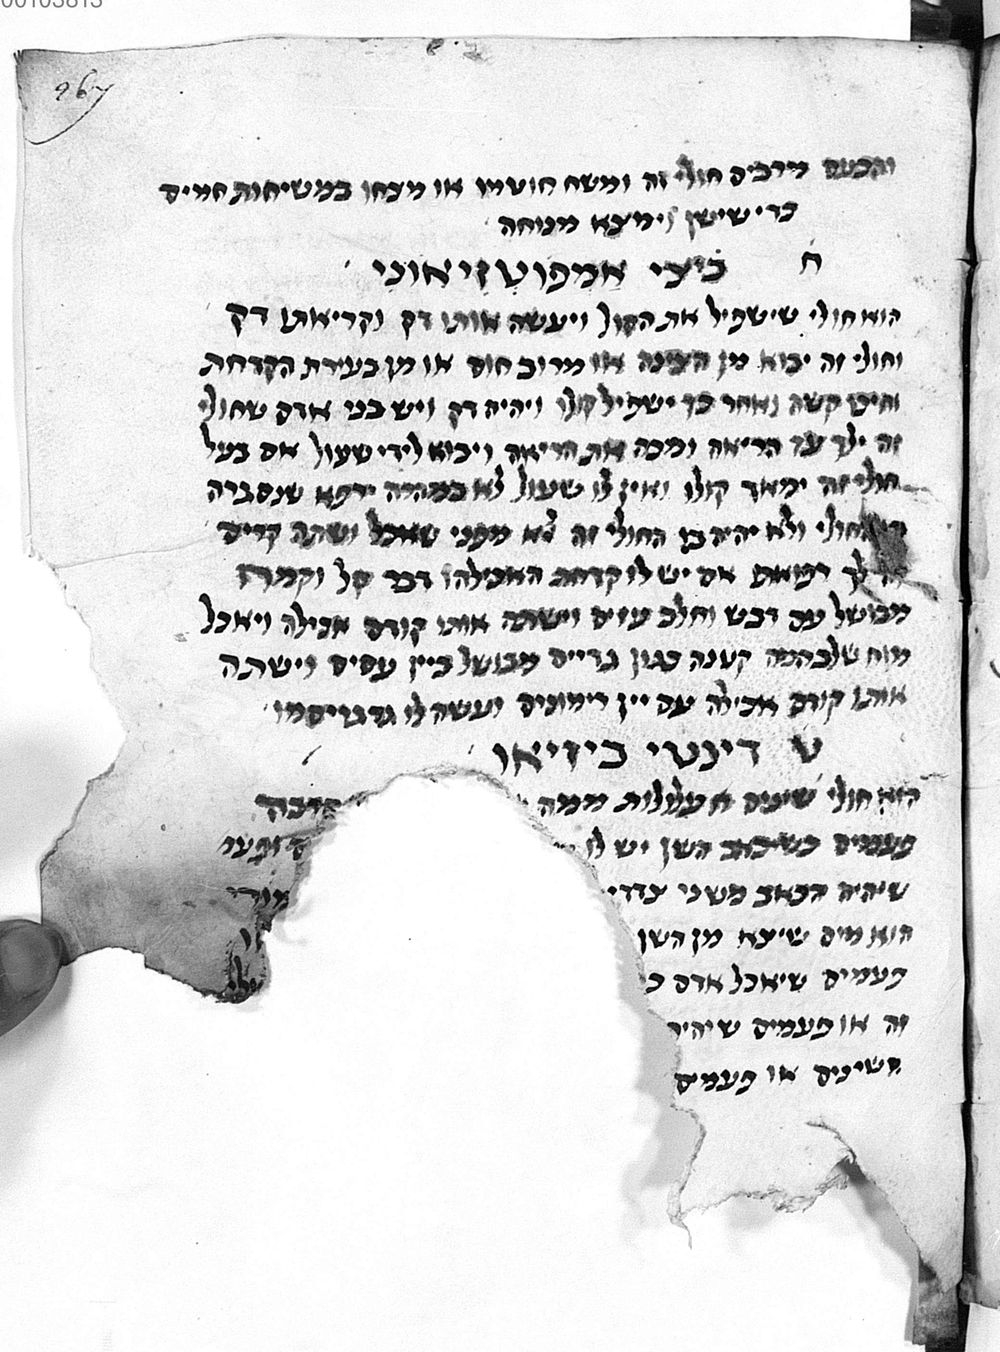 00103813
267
והכעס מרבים חולי זה ומשח חוטמו או מצחו במשיחות חמים
כדי שישן וימצא מנוחה
ח ביצי אמפוטזיאוני
הוא חולי שישפיל את הקול ויעשה אותו דק וקריאתו דק
וחולי זה יבוא מן הצינה או מרוב חום או מן בעירת הקדחת
קשה ואחר כך ישפיל קולו ויהיה דק ויש בני אדם שחולי
זה ילך עד הריאה ומכה את הריאה ויבוא לידי שעול אם בעל
חולי זה ימאך קולו ואין לו שעול לא במהרה ירפא שנסברה
החולי ולא יהיה בן החולי זה לא מפני שאכל ושתה קרים
רפואתו אם יש לו קדחת האכילהו דבר קל
מבושל עם דבש וחלב עזים וישתה אותו קודם אכילה ויאכל
מוח של בהמה קטנה כגון גדיים מבושל ביין עסיס וישתה
אותו קודם אכילה עם יין רימונים ועשה לו
ט דינטי
הוא חולי שיבוא מעלולות ממה
פעמים כשיכאב השן יש לו
שיהיה הכאב משני צדדי
הוא מים שיצא מן השן
פעמים שיאכל אדם
זה או פעמים שיהיה
השינים או פעמים